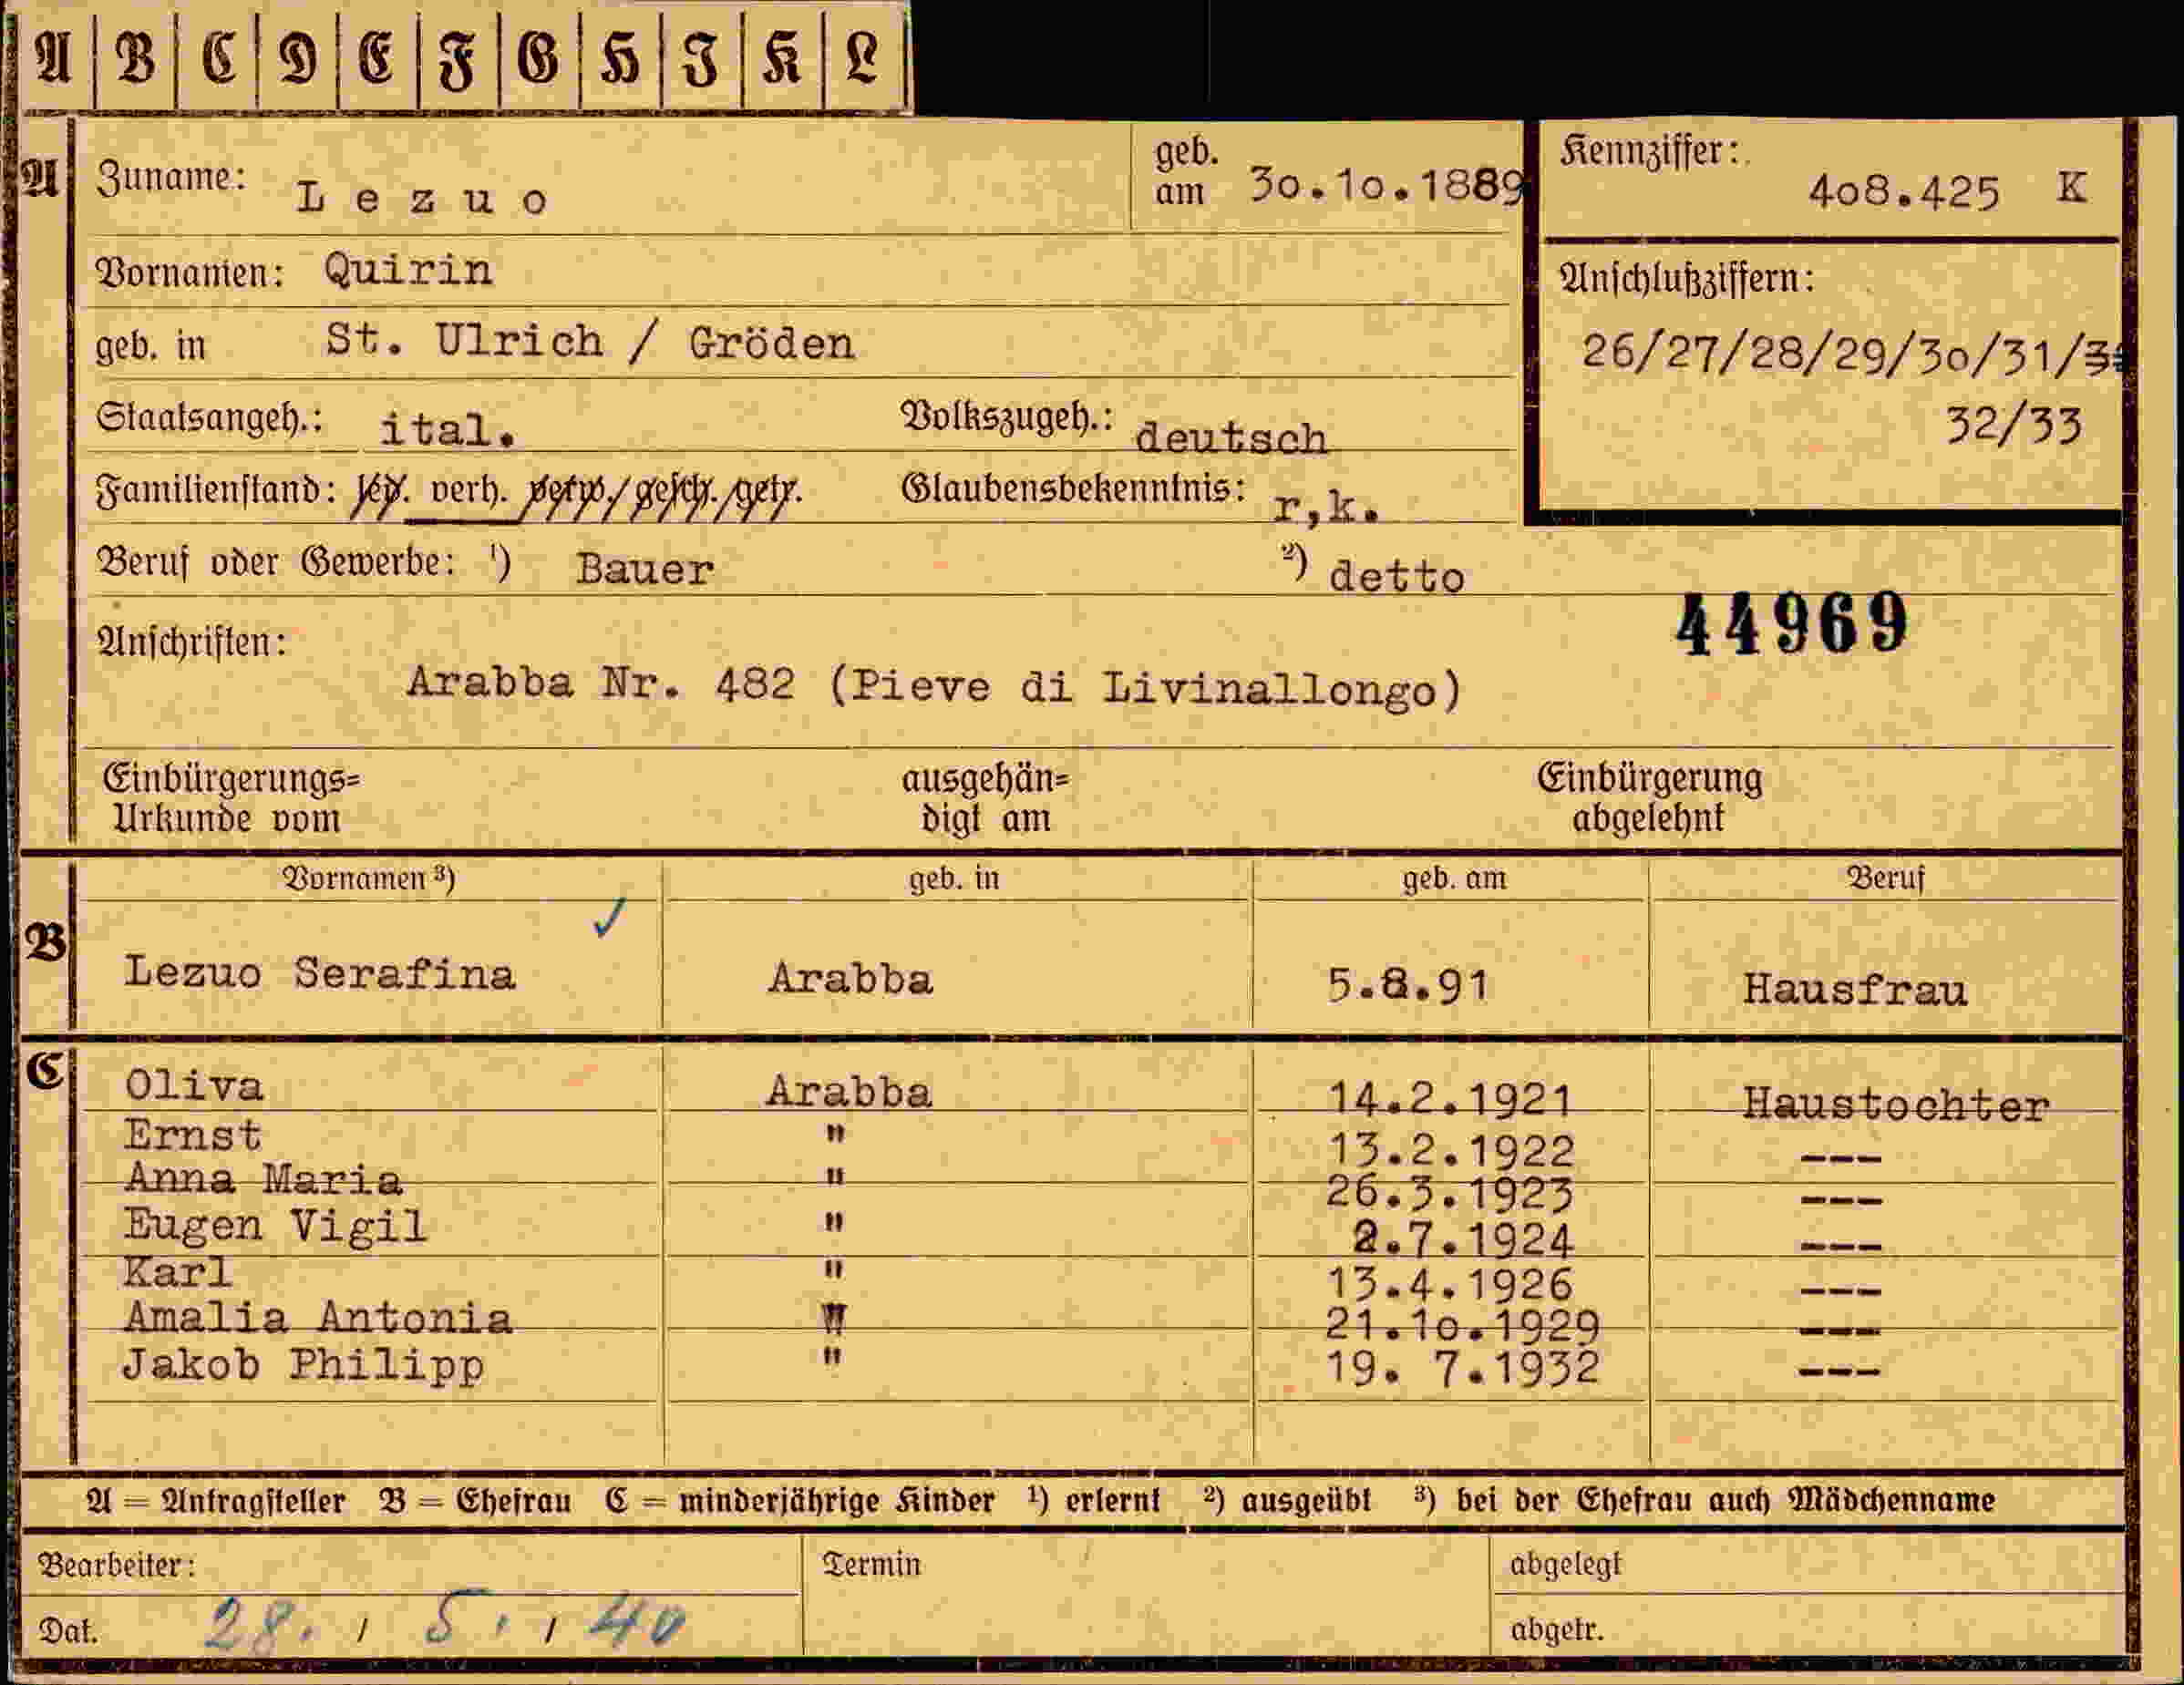 A B C D E F G H I K L
A Zuname: Lezuo geb. am 30.10.1889 Kennziffer: 408.425 K
Vornamen: Quirin
geb. in St. Ulrich / Gröden
Anschlußziffern:
26/27/28/29/30/31/
32/33
Staatsangeh.: ital. Volkszugeh.: deutsch
Familienstand: led. verh. verw./gesch./getr. Glaubensbekenntnis: r,k.
Beruf oder Gewerbe: ¹) Bauer ²) detto
44969
Anschriften:
Arabba Nr. 482 (Pieve di Livinallongo)
Einbürgerungs= ausgehän= Einbürgerung
Urkunde vom digt am abgelehnt
Vornamen ³) geb. in geb. am Beruf
✓
B Lezuo Serafina Arabba 5.8.91 Hausfrau
C Oliva Arabba 14.2.1921 Haustochter
Ernst " 13.2.1922 ---
Anna Maria " 26.3.1923 ---
Eugen Vigil " 2.7.1924 ---
Karl " 13.4.1926 ---
Amalia Antonia " 21.10.1929 ---
Jakob Philipp " 19. 7.1932 ---
A = Antragsteller B = Ehefrau C = minderjährige Kinder ¹) erlernt ²) ausgeübt ³) bei der Ehefrau auch Mädchenname
Bearbeiter: Termin abgelegt
Dat. 28. / 5. / 40 abgetr.